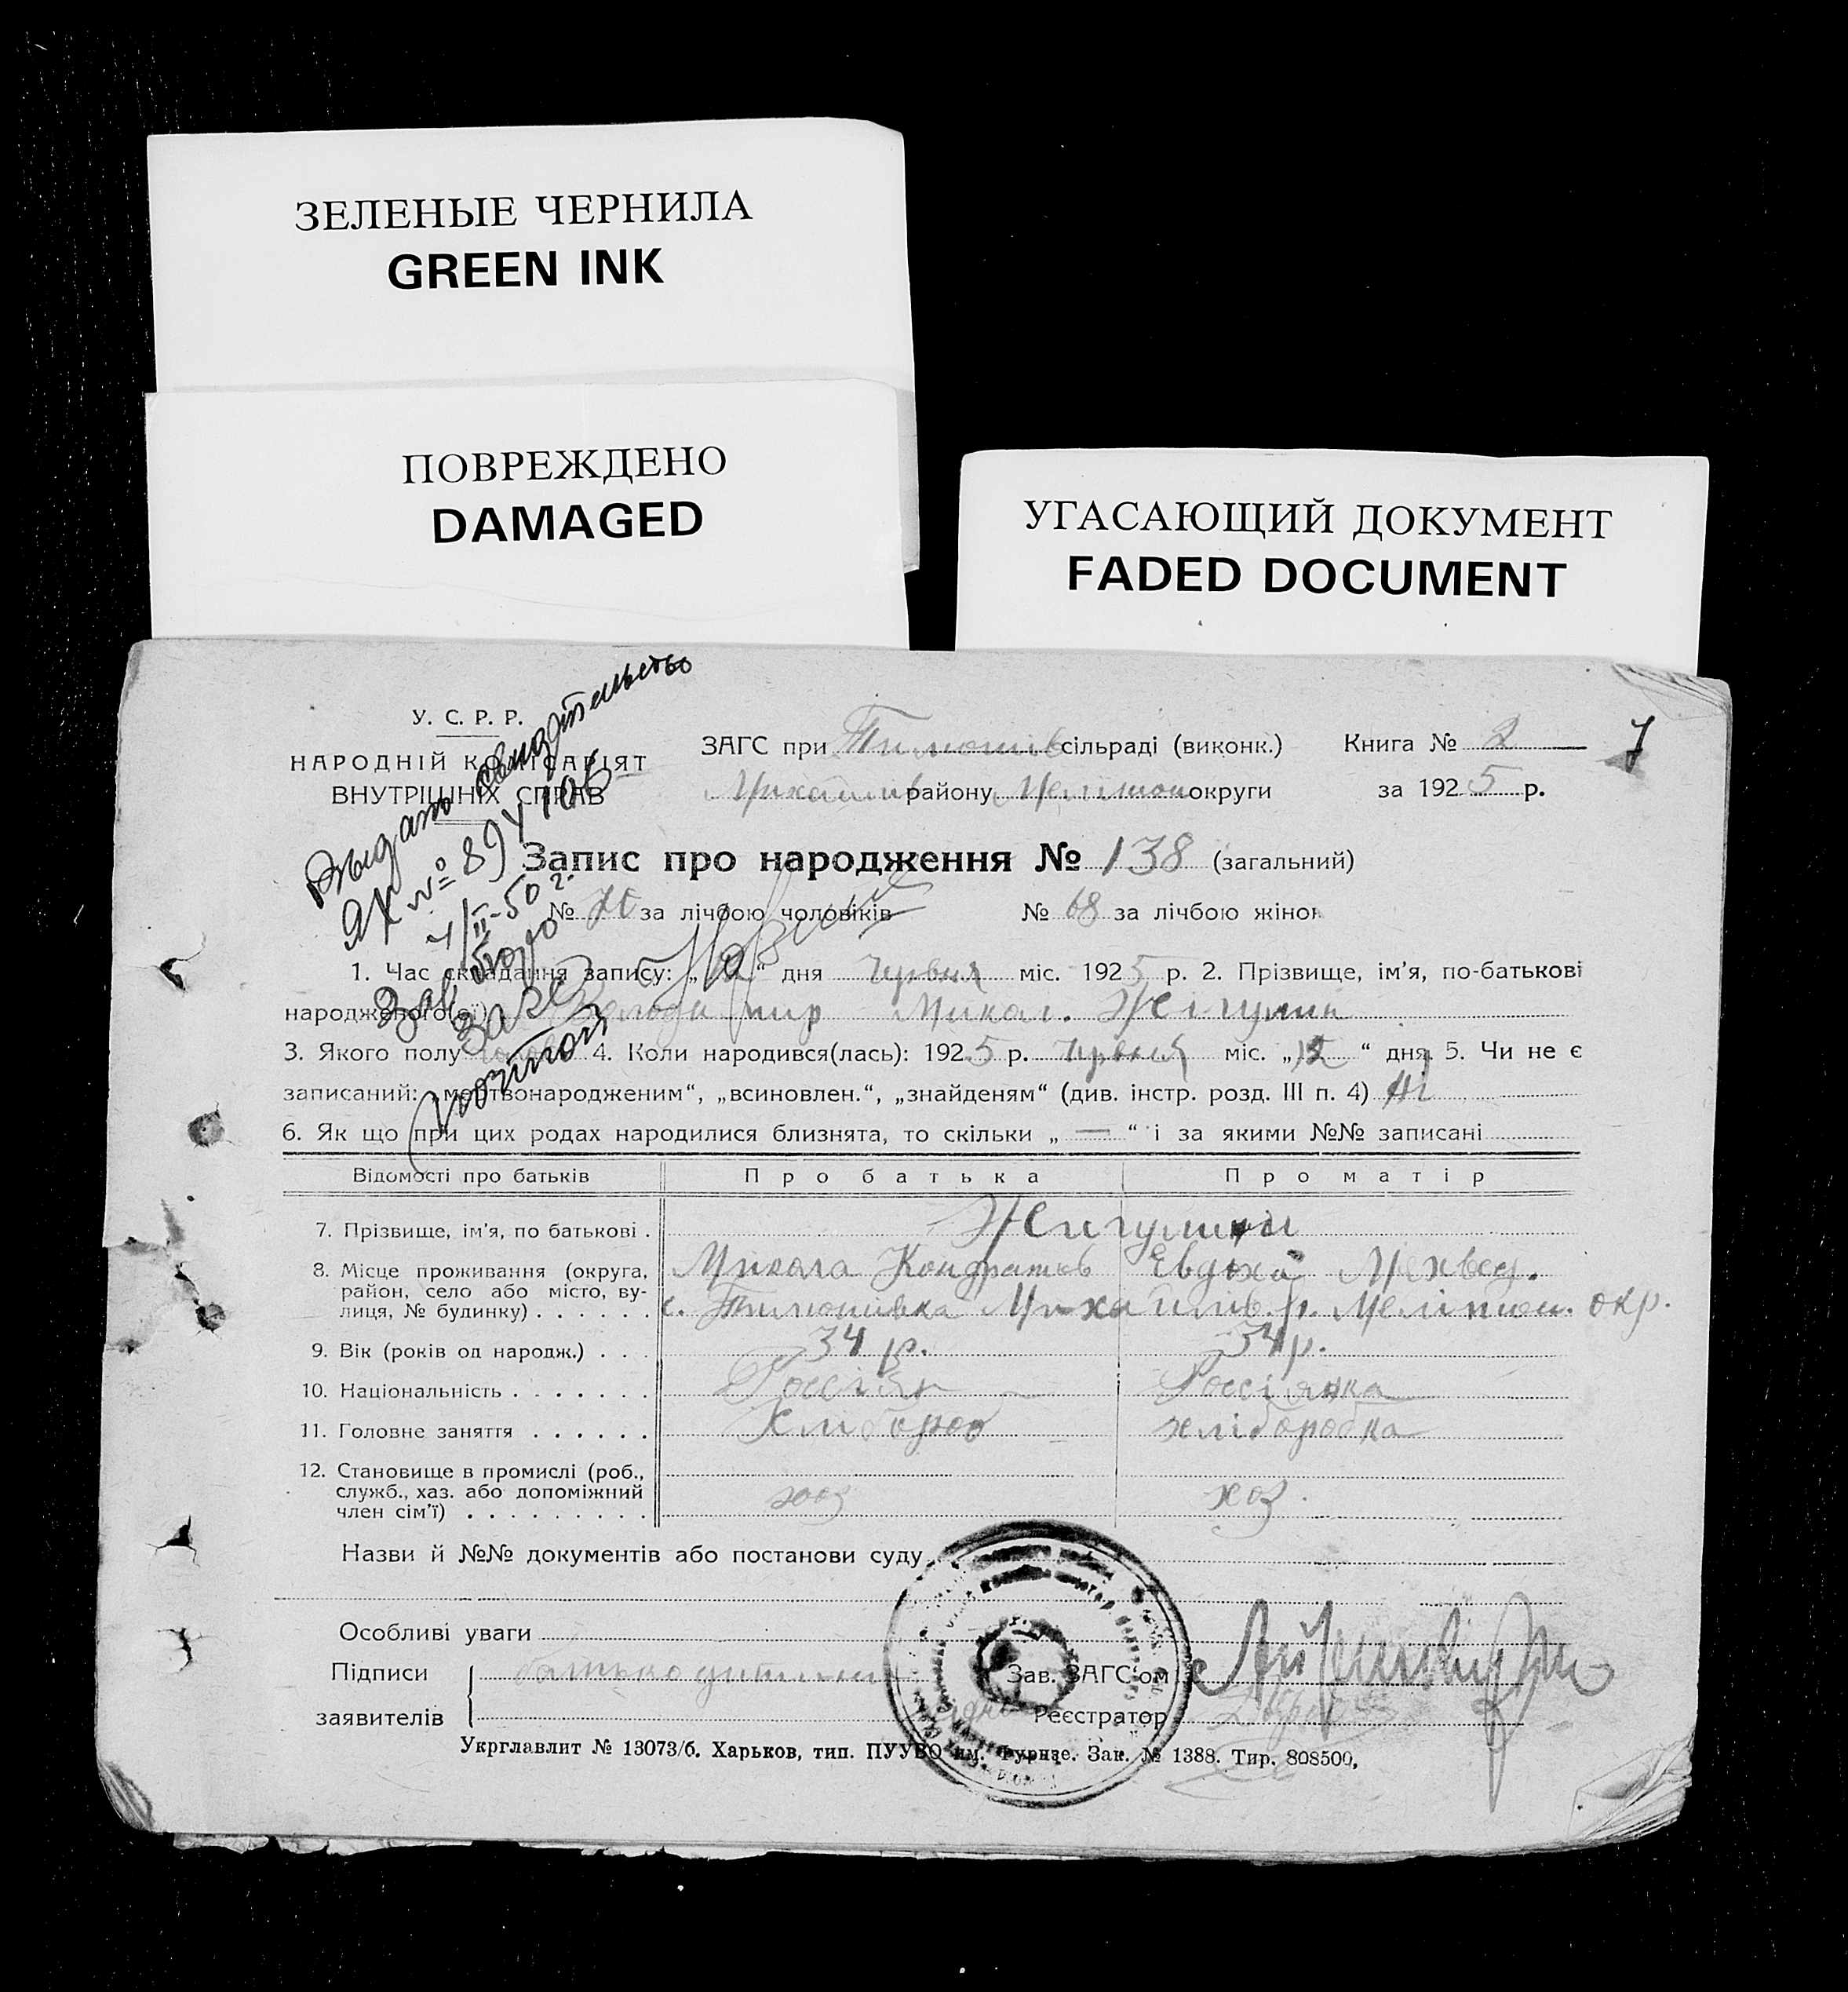 ЗЕЛЕНЫЕ ЧЕРНИЛА
GREEN INK
ПОВРЕЖДЕНО
DAMAGED
УГАСАЮЩИЙ ДОКУМЕНТ
FADED DOCUMENT
У. С. Р. Р.
НАРОДНІЙ КОМІСАРІЯТ
ВНУТРІШНІХ СПРАВ
Выдано свидетельство
ЯК № 894106
4/II-50 г.
Зав. бюро
ЗАГС
ЗАГС при Тимошів сільраді (виконк.) Книга № 2
7
Михайлів району Мелітоп округи за 1925 р.
Запис про народження № 138 (загальний)
№ 70 за лічбою чоловіків № 68 за лічбою жінок
1. Час складання запису: „ “ дня Червня міс. 1925 р. 2. Прізвище, ім’я, по-батькові
народженого(ої) Володимир Микол. Жігулин
3. Якого полу чолов 4. Коли народився(лась): 1925 р. Червня міс. „12“ дня, 5. Чи не є
записаний: „мертвонародженим“, „всиновлен.“, „знайденям“ (див. інстр. розд. III п. 4) Ні
6. Як що при цих родах народилися близнята, то скільки „ — “ і за якими №№ записані
Відомості про батьків Про батька Про матір
7. Прізвище, ім’я, по батькові . Жигулини
Микола Кондратов Евдокія
8. Місце проживання (округа, район, село або місто, вулиця, № будинку) . . . . . . с. Тимошівка Михайлів. р. Мелітоп. окр.
9. Вік (років од народж.) . . . 34 р. 34 р.
10. Національність . . . . . . . Россіян Россіянка
11. Головне заняття . . . . . . Хлібороб хлібороб­ка
12. Становище в промислі (роб., служб., хаз. або допоміжний член сім’ї) . . . . . . . . . хоз хоз.
Назви й №№ документів або постанови суду
Особливі уваги
Підписи батько дитини Зав. ЗАГС’ом
заявителів Реєстратор
Укрглавлит № 13073/б. Харьков, тип. ПУУВО им. Фрунзе. Зак. № 1388. Тир. 808500,